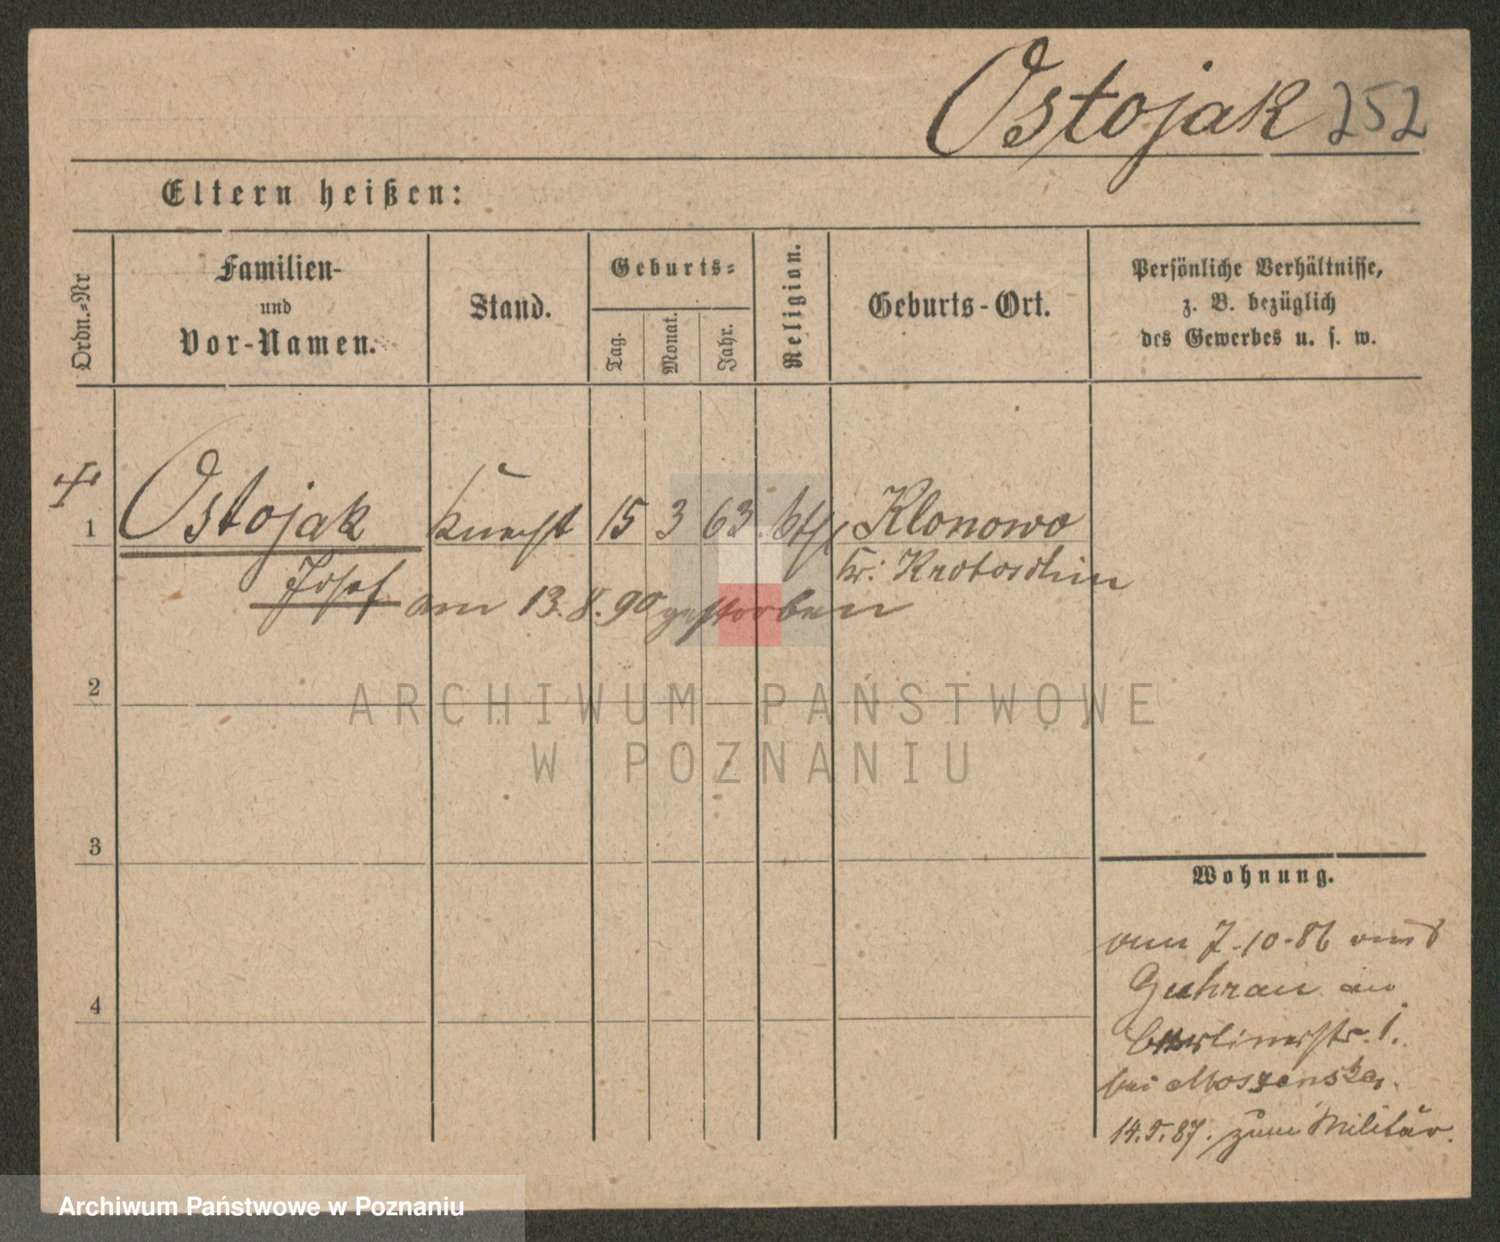 Ostojak 252
Eltern heißen:
Ordn.-Nr
Familien-
und
Vor-Namen.
Stand.
Geburts-
Tag.
Monat.
Jahr.
Religion.
Geburts-Ort.
Persönliche Verhältnisse,
z. B. bezüglich
des Gewerbes u. s. w.
1 Ostojak Knecht 15 3 63 kth Klonowo
Kr. Krotoschin
Josef am 13.8.90 gestorben
2
ARCHIWUM PAŃSTWOWE
W POZNANIU
3
4
Wohnung.
7-10-86
Guhrau an
Berlinerstr. 1.
bei Moszenska,
14.5.87. zum Militär.
Archiwum Państwowe w Poznaniu